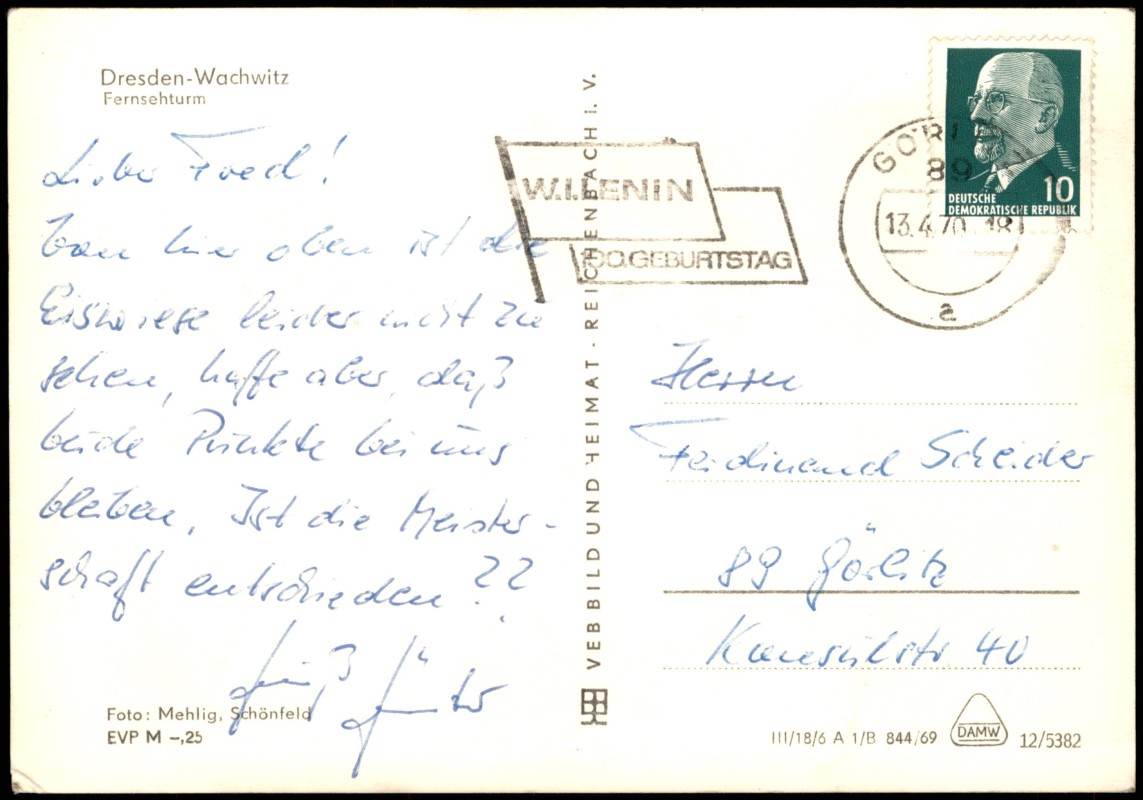 Dresden-Wachwitz
Fernsehturm
Lieber Fred!
Von hier oben ist die
Eiswiese leider nicht zu
sehen, hoffe aber, daß
beide Punkte bei uns
bleiben. Ist die Meister-
schaft entschieden??
Gruß Günter
Foto: Mehlig, Schönfeld
EVP M -,25
VEB BILD UND HEIMAT · REICHENBACH i. V.
W.I.LENIN
100.GEBURTSTAG
GÖRLITZ
89
13.4.70-18
a
10
DEUTSCHE
DEMOKRATISCHE REPUBLIK
Herrn
Ferdinand Scheider
89 Görlitz
Konsulstr 40
III/18/6 A 1/B 844/69
DAMW
12/5382